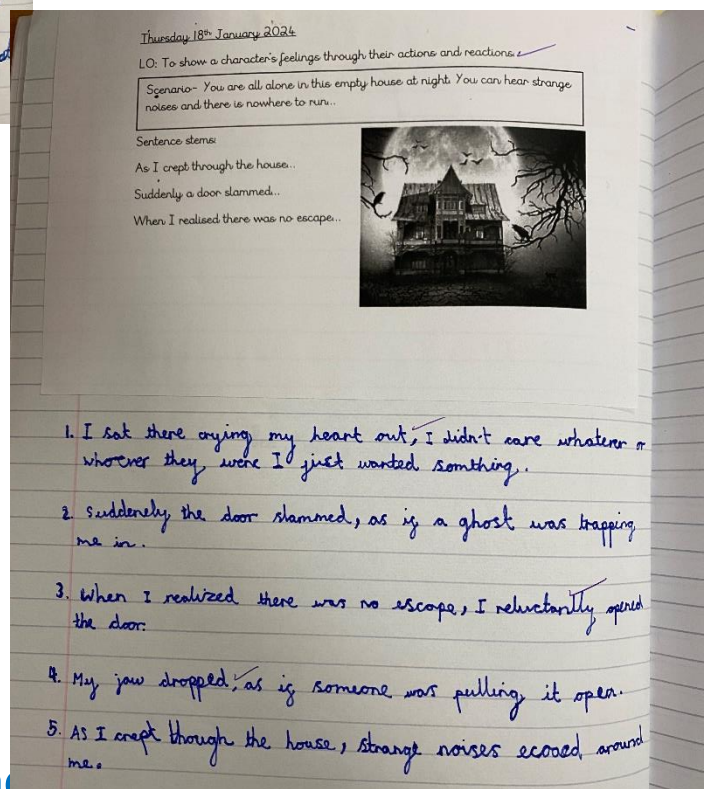 Thursday 18th January 2024
LO: To show a character's feelings through their actions and reactions.
Scenario- You are all alone in this empty house at night. You can hear strange
noises and there is nowhere to run...
Sentence stems:
As I crept through the house...
Suddenly a door slammed...
When I realised there was no escape...
1. I sat there crying my heart out, I didn't care whatever or
whoever they were I just wanted somthing.
2. Suddenely the door slammed, as if a ghost was trapping
me in.
3. When I realized there was no escape, I reluctantlly opened
the door.
4. My jaw dropped, as if someone was pulling it open.
5. As I crept though the house, strange noises ecooed around
me.